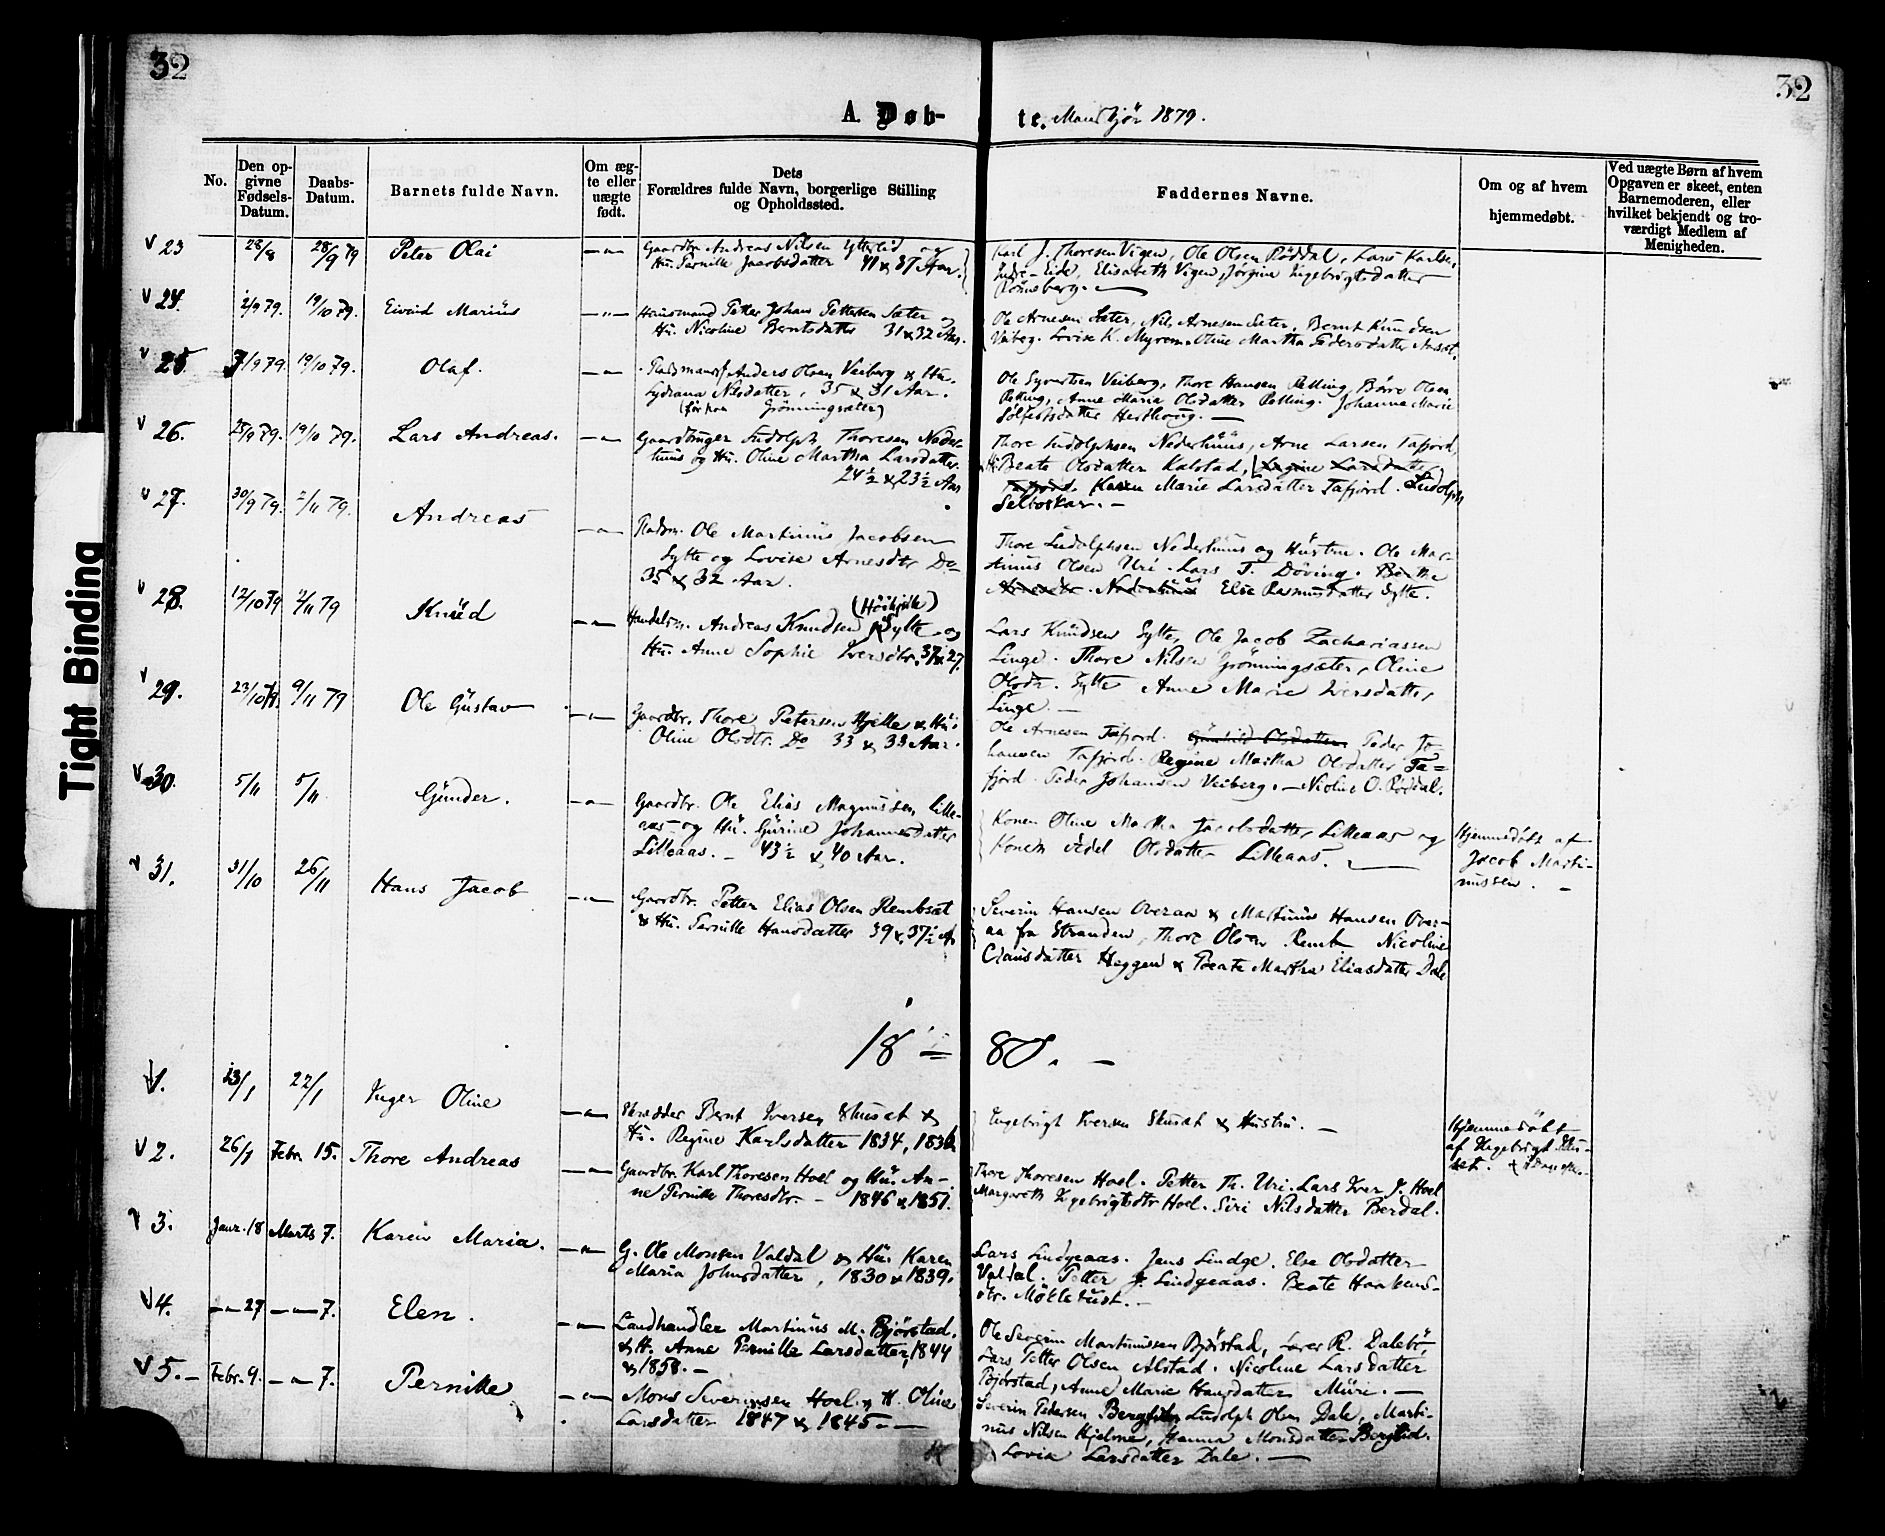 32
32
A. Døb-
te. Mandkjön 1879.
No.
Den op-
givne
Fødsels-
Datum.
Daabs-
Datum.
Barnets fulde Navn.
Om æg-
te eller
uægte
født.
Dets
Forældres fulde Navn, borgerlige Stilling
og Opholdssted.
Faddernes Navne.
Om og af hvem
hjemmedøbt.
Ved uægte Børn af hvem
Opgaven er skeet, enten
Barnemoderen, eller
hvilket bekjendt og tro-
værdigt Medlem af
Menigheden.
23 28/8 28/9 79 Peter Olai —"—
Gaardbr. Andreas Nilsen Ytterlid og
Hu. Pernille Jacobsdatter 41 & 37 Aar.
Karl J. Thoresen Vigen, Ole Olsen Røddal, Lars Karlsen
Indre-Eide, Elisabeth Vigen, Jørgine Ingebrigtsdatter
Rønneberg.
24. 2/9 79. 19/10 79. Eivind Marius —"—
Huusmand Petter Johan Pettersen Sæter og
Hu. Nicoline Berntsdatter 31 & 32 Aar.
Ole Arnesen Sæter, Nils Arnesen Sæter, Bernt Knudsen
Veiberg. Lovise K. Myrem. Oline Martha Pedersdatter
25 7/9 79. 19/10 79. Olaf. —"—
Pladsmand Anders Olsen Veiberg & Hu.
Lydiana Nilsdatter, 35 & 31 Aar.
(før paa Grønningsæter)
Ole Syvertsen Veiberg, Thore Hansen Relling, Børre Olsen
Relling, Anne Maria Olsdatter Relling. Johanne Marie
Sølfestsdatter Herdhoug. —
26. 25/9 79. 19/10 79. Lars Andreas. —"—
Gaardbruger Ludolph Thoresen Neder-
huus og Hu. Oline Martha Larsdatter.
24 ½ & 23 ½ Aar
Thore Ludolphsen Nederhuus, Arne Larsen Tafjord,
Beate Olsdatter Kalstad, Regine Larsdatter
Tafjord. Karen Marie Larsdatter Tafjord. Ludolph
Selboskar. —
27. 30/9 79. 2/11 79. Andreas —"—
Pladsm. Ole Martinus Jacobsen
Sylte og Lovise Arnesdtr Do
35 & 32 Aar.
Thore Ludolphsen Nederhuus og Hustru. Ole Mar-
tinus Olsen Uri. Lars T. Døving. Berthe
Arnesdtr Nederhuus Else Rasmusdatter Sylte.
28. 12/10 79 2/11 79 Knud —"—
(Høihjelle)
Handelsm. Andreas Knudsen Sylte og
Hu. Anne Sophie Iversdtr. 37 & 27.
Lars Knudsen Sylte, Ole Jacob Zachariassen
Linge. Thore Nilsen Grønningsæter, Oline
Olsdr. Sylte Anne Marie Iversdatter
Linge. —
29. 23/10 79. 9/11 79 Ole Gustav —"—
Gaardbr. Thore Petersen Hjelle & Hu.
Oline Olsdtr. Do 33 & 33 Aar.
Ole Arnesen Tafjord. Gunhild Olsdatter. Peder Jo-
hansen Tafjord. Regine Martha Olsdatter Ta=
fjord. Peder Johansen Veiberg. — Nicoline O. Røddal.
30. 5/11 5/11 Gunder. —"—
Gaardbr. Ole Elias Magnussen Lille-
aas og Hu. Gurine Johannesdatter
Lilleaas. — 43 ½ & 40 Aar.
Konen Oline Martha Jacobsdatter Lilleaas og
Konen Adel Olsdatter Lilleaas. —
Hjemmedøbt af
Jacob Marti-
nussen. —
31. 31/10 26/11 Hans Jacob —"—
Gaardbr. Petter Elias Olsen Rembsæt
& Hu. Pernille Hansdatter 39 & 37 ½ A
Severin Hansen Overaa & Martinus Hansen Over-
aa fra Stranden, Thore Olsen Remb Nicoline
Clausdatter Heggen & Beate Martha Eliasdatter Dale
18 = 80. —
1. 13/1 22/1 Inger Oline —"—
Skrædder Bernt Iversen Skusæt &
Hu. Regine Karlsdatter 1834, 1836
Ingebrigt Iversen Skusæt & Hustru. —
Hjemmedøbt
af Ingebrigt Sku-
sæt.
2. 26/1 Febr. 15. Thore Andreas —"—
Gaardbr. Karl Thoresen Hoel og Hu. An-
ne Pernille Thoresdtr. — 1846 & 1851.
Thore Thoresen Hoel. Petter Th. Uri. Lars Iver J. Hoel
Margareth Ingebrigtsdtr Hoel. Siri Nilsdatter Berdal.
3. Janr. 18 Marts 7. Karen Maria. —"—
G. Ole Monsen Valdal & Hu. Karen
Maria Johnsdatter, 1830 & 1839.
Lars Lindgeaas. Jens Lindge. Else Olsdatter
Valdal. Petter J. Lindgeaas. Beate Haakens-
dtr. Mökletust. —
4. —"— 27 —"— 7. Elen. —"—
Landhandler Martinus M. Bjørstad.
& H. Anne Pernille Larsdatter, 1844
& 1858. —
Ole Severin Martinussen Bjørstad, Lars R. Dalebø,
Lars Petter Olsen Alstad. Nicoline Larsdatter
Bjørstad, Anne Marie Hansdatter Muri. —
5. — Febr. 9. —"— 7. Pernille —"—
Mons Severinsen Hoel & H. Oline
Larsdatter 1847 & 1845. —
Severin Pedersen Berglid, Ludolph Olsen Dale, Marti-
nus Nilsen Hjelme, Hanna Monsdatter Berglid.
Lovia Larsdatter Dale. —
Tight Binding